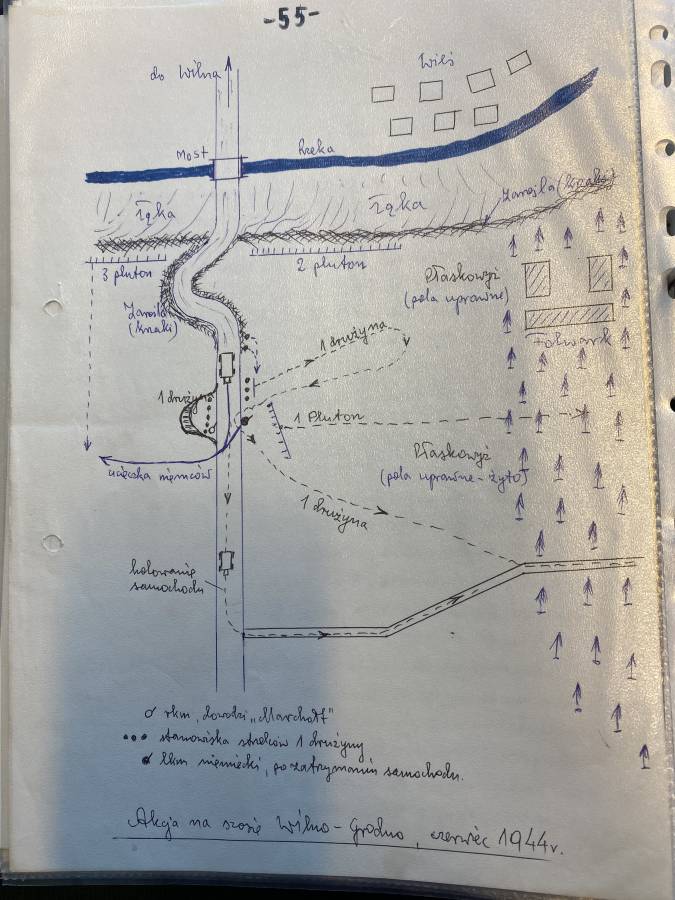 -55-
do Wilna
Wieś
Most
Rzeka
Łąka
Łąka
Zarośla (krzaki)
3 pluton
2 pluton
Płaskowyż
(pola uprawne)
Zarośla
(krzaki)
Folwark
1 drużyna
1 drużyna
1 Pluton
Płaskowyż
(pola uprawne - żyto)
ucieczka niemców
1 drużyna
holowanie
samochodu
rkm, dowodzi "Marchołt"
stanowiska strzelców 1 drużyny
lkm niemiecki, po zatrzymaniu samochodu.
Akcja na szosie Wilno - Grodno, czerwiec 1944r.